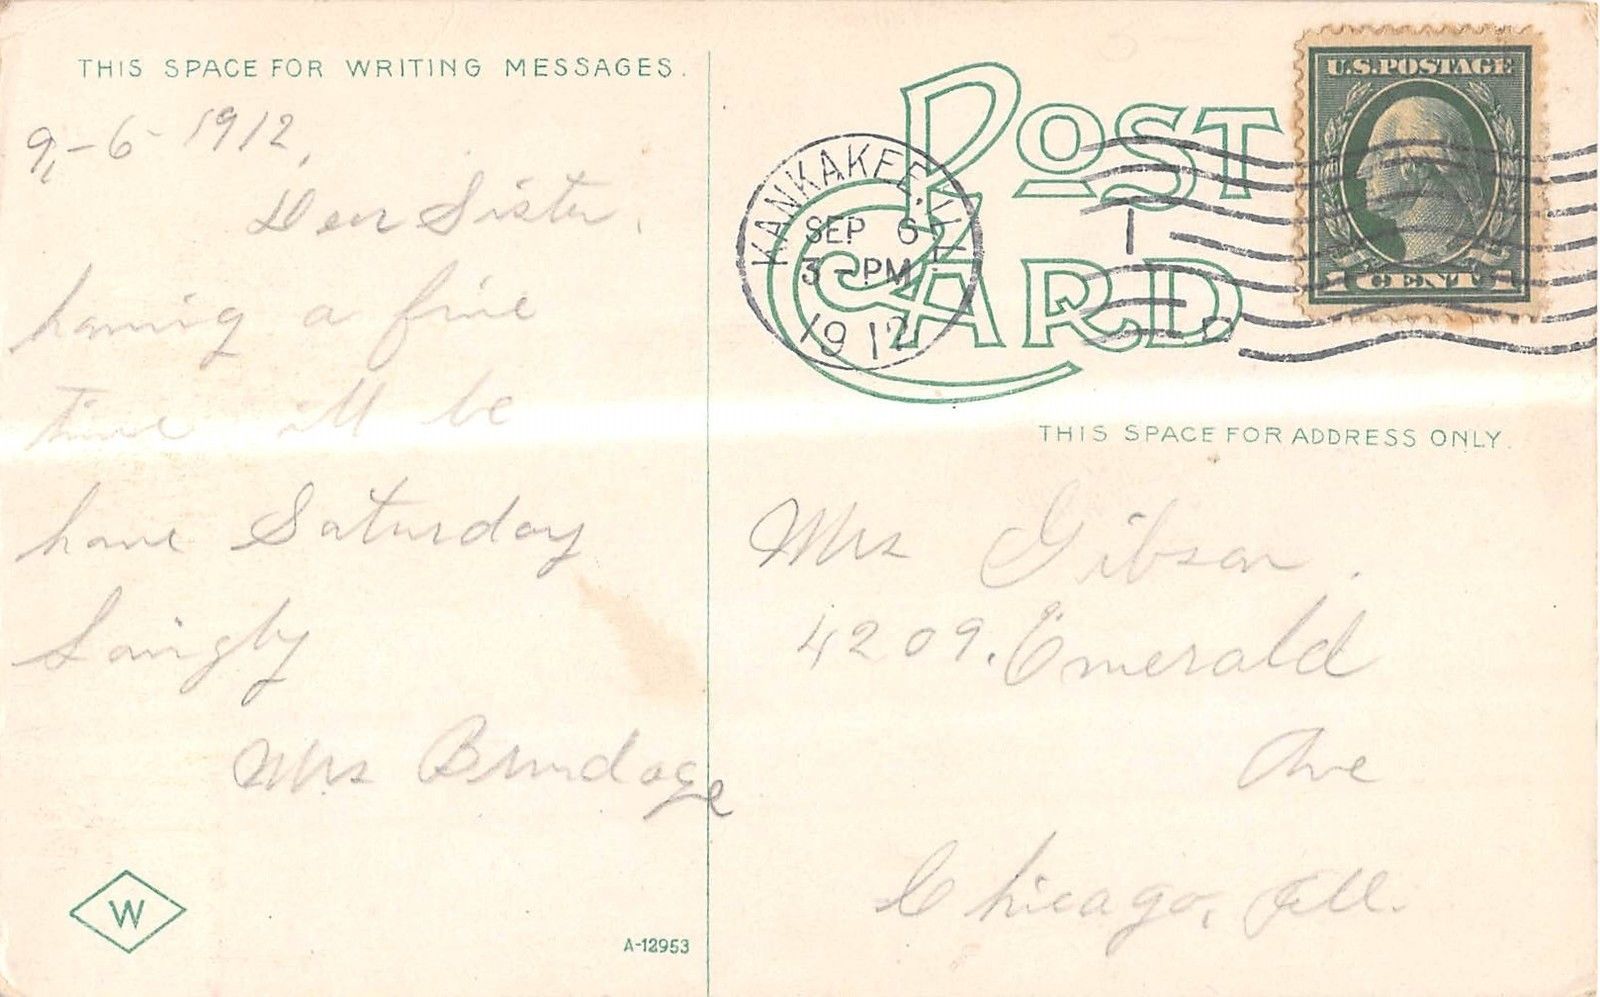 THIS SPACE FOR WRITING MESSAGES.
9-6-1912,
Dear Sister.
having a fine
time ill be
home Saturday
Mrs Brundage
W
A-12953
POST CARD
KANKAKEE, ILL.
SEP 6
3-PM
1912
U.S.POSTAGE
1 CENT 1
THIS SPACE FOR ADDRESS ONLY.
Mrs Gibson.
4209. Emerald
Ave
Chicago, Ill.